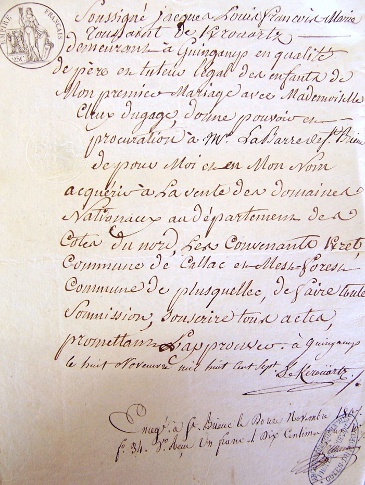 Soussigné Jacques Louis François Marie
Toussaint de Kerouartz
demeurant à Guingamp en qualité
de père et tuteur légal des enfants de
Mon premier Mariage avec Mademoiselle
Cleux dugage, donne pouvoir et
procuration à Mr. La Barre de St. Brieuc
de pour Moi et en Mon Nom
acquérir à La vente des domaines
Nationaux au département des
Côtes du nord, Les Convenants
Commune de Callac et
Commune de plusquellec, de faire toute
Soumission, souscrire tous actes,
promettant L'approuver. à Guingamp
le huit Novembre mil huit cent sept
De Kerouartz
Enregé. à St. Brieuc le Douze Novembre 1807
fo. 34. Vo. Reçu Un franc & Dix Centimes